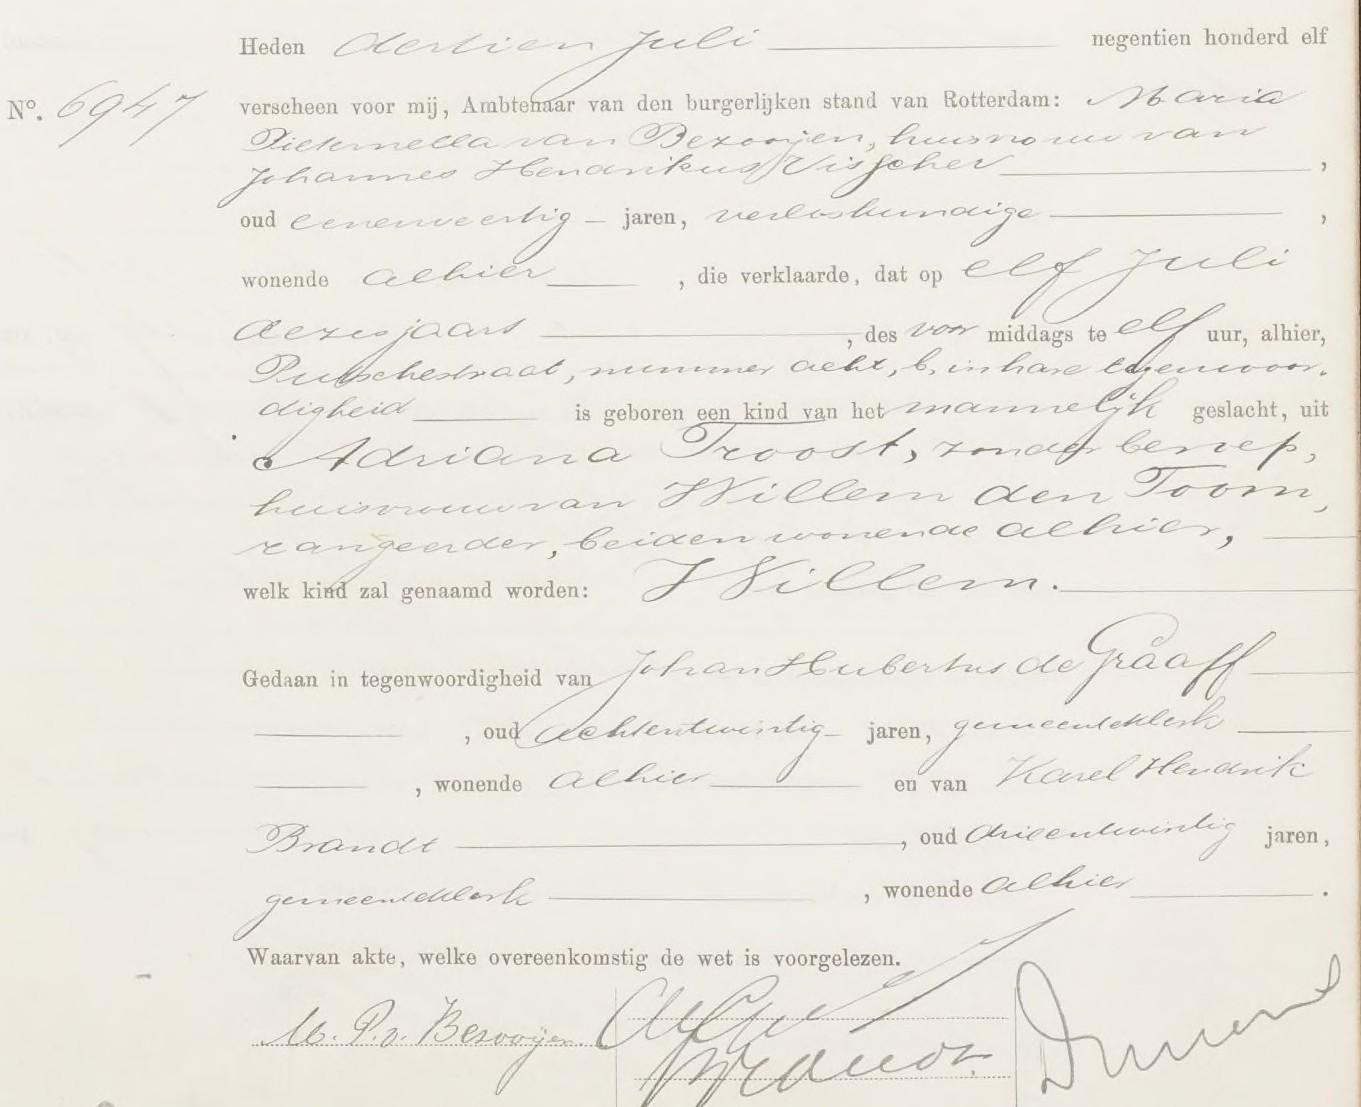 Heden dertien Juli negentien honderd elf
Nº. 6947 verscheen voor mij, Ambtenaar van den burgerlijken stand van Rotterdam: Maria
Pieternella van Bezooijen, huisvrouw van
Johannes Hendrikus Visscher,
oud eenenveertig jaren, verloskundige,
wonende alhier, die verklaarde, dat op elf Juli
dezes jaars, des voor middags te elf uur, alhier,
Putschestraat, nummer acht, b, in hare tegenwoor-
digheid is geboren een kind van het mannelijk geslacht, uit
Adriana Troost, zonder beroep,
huisvrouw van Willem den Toom,
rangeerder, beiden wonende alhier,
welk kind zal genaamd worden: Willem.
Gedaan in tegenwoordigheid van Johan Hubertus de Graaff
, oud achtentwintig jaren, gemeenteklerk
, wonende alhier en van Karel Hendrik
Brandt, oud drieentwintig jaren,
gemeenteklerk, wonende alhier.
Waarvan akte, welke overeenkomstig de wet is voorgelezen.
M. P. v. Bezooijen
Brandt